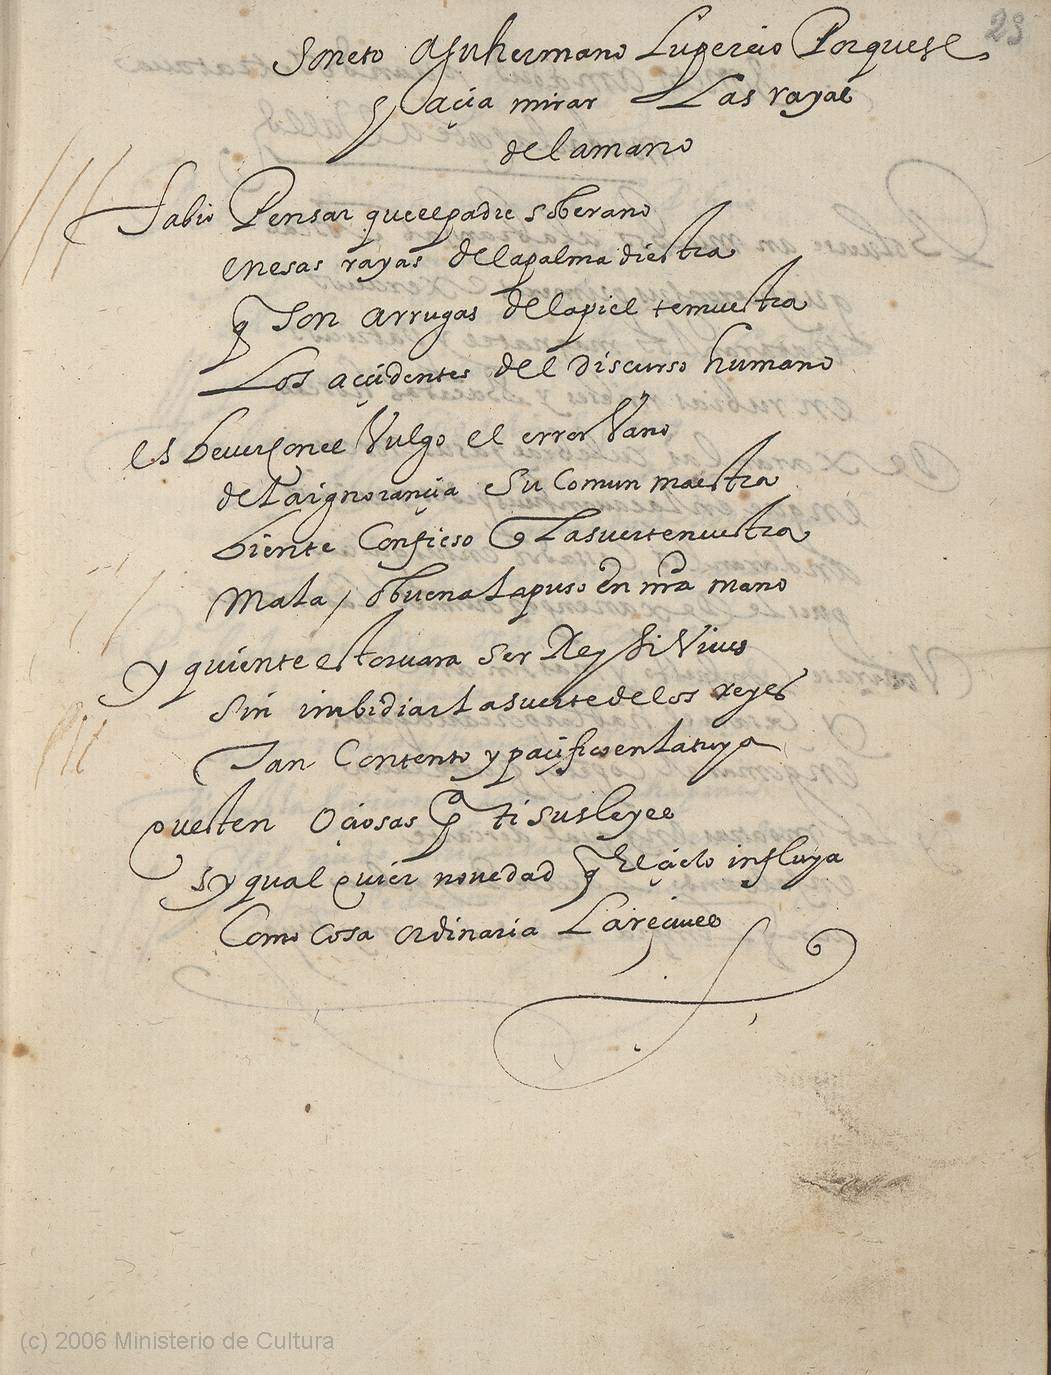 23
Soneto A su hermano Lupercio Porque se
haçia mirar Las rayas
de la mano
Fabio Pensar que el padre soberano
en esas rayas de la palma diestra
q son arrugas de la piel te muestra
Los acçidentes del discurso humano
es beuer con el Vulgo el error Vano
de la ignorançia su comun maestra
bien te Confieso q La suerte nuestra
Mala, o buena la puso en nra mano
y quien te estoruara ser Rey si Viues
sin imbidiar La suerte de los reyes
Tan Contento y paçifico en la tuya
que esten Oçiosas Pa ti sus leyes
y qualquier nouedad q El çielo influya
Como cosa ordinaria La reçiues
(c) 2006 Ministerio de Cultura